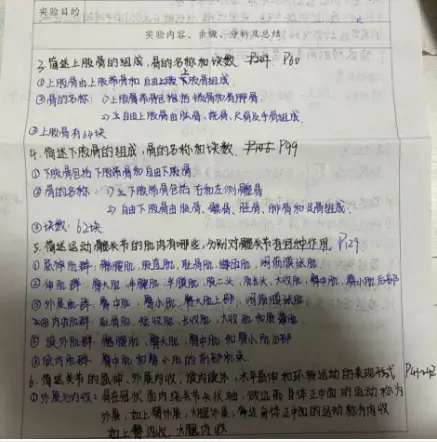 实验目的
实验内容、步骤、分析及总结
3. 简述上肢骨的组成，骨的名称和块数. P60
①上肢骨由上肢带骨和自由上肢骨组成
②骨的名称: 1)上肢带骨包括锁骨和肩胛骨
2)自由上肢骨由肱骨, 桡骨, 尺骨及手骨组成.
③上肢骨有64块
4. 简述下肢骨的组成, 骨的名称和块数. P99
①下肢骨包括下肢带骨和自由下肢骨.
②骨的名称: 1)下肢带骨包括右和左侧髋骨
2)自由下肢骨由股骨、髌骨、胫骨、腓骨和足骨组成.
③块数: 62块
5. 简述运动髋关节的肌肉有哪些, 分别对髋关节有何种作用. P129
①屈伸肌群: 髂腰肌, 股直肌, 耻骨肌, 缝匠肌, 阔筋膜张肌
②伸肌群: 臀大肌, 半腱肌, 半膜肌, 股二头, 大收肌, 臀中肌, 臀小肌后部
③外展肌群: 臀中肌, 臀小肌, 臀大肌上部, 阔筋膜张肌
④内收肌群: 耻骨肌, 短收肌, 长收肌, 大收肌和股薄肌.
⑤旋外肌群: 髂腰肌, 臀大肌, 臀中肌和臀小肌后部
⑥旋内肌群: 臀中肌和臀小肌的前部肌束.
6. 简述关节的屈伸, 外展内收, 旋内旋外, 水平屈伸和环转运动的表现形式 P41~42
①外展与内收: 是在冠状面内绕关节矢状轴, 做远离身体正中面的运动称为
外展, 如上臂外展, 大腿外展; 靠近身体正中面的运动称为内收
如上臂内收, 大腿内收